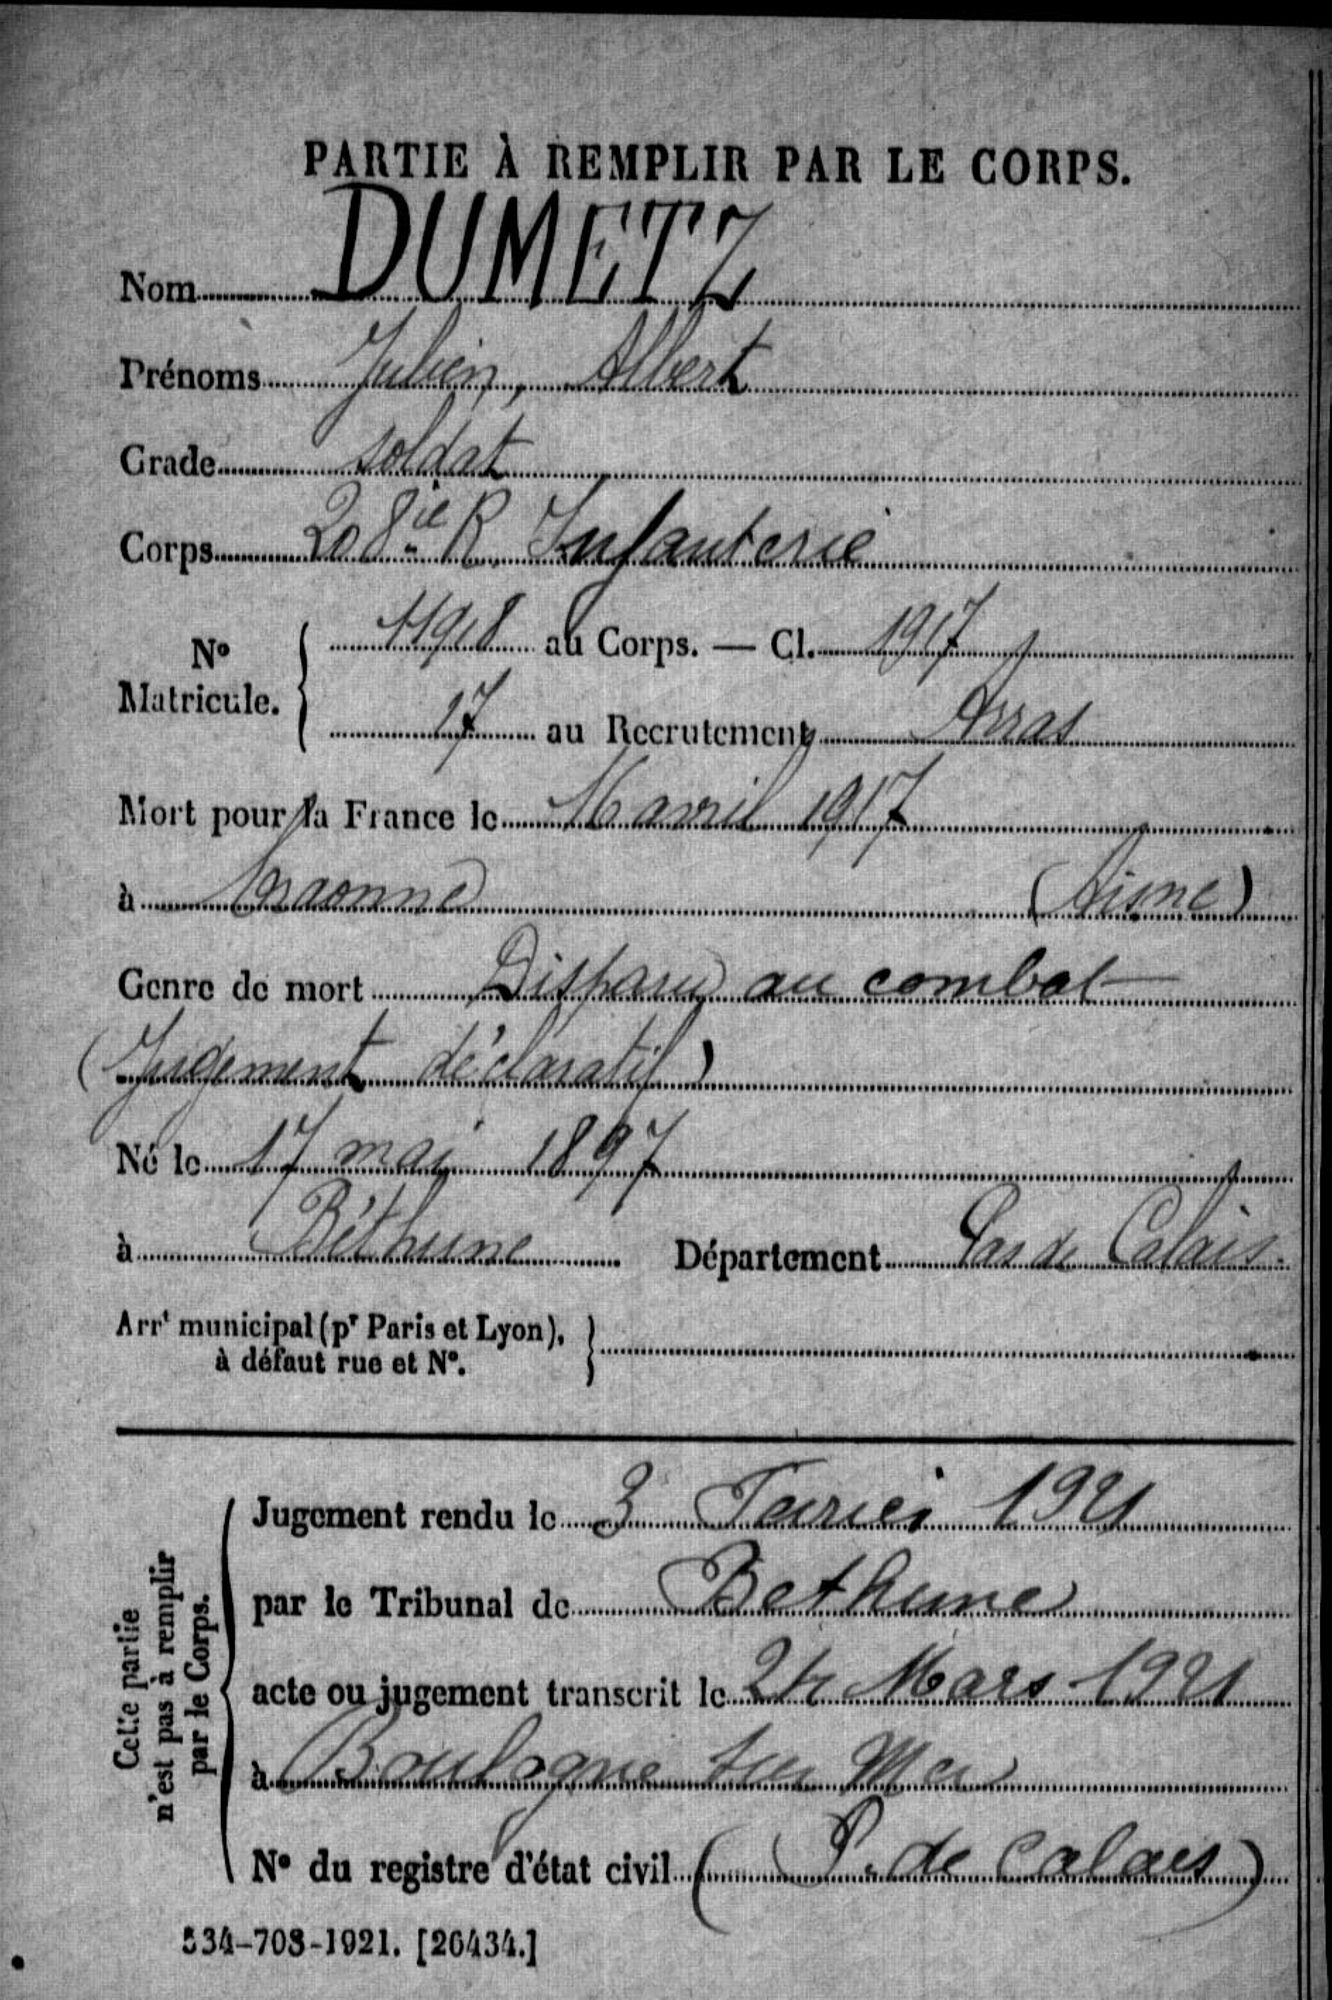 PARTIE À REMPLIR PAR LE CORPS.
Nom DUMETZ
Prénoms Julien, Albert
Grade soldat
Corps 208ie R. Infanterie
No Matricule. { 11918 au Corps. — Cl. 1917
17 au Recrutement Arras
Mort pour la France le 16 avril 1917
à Craonne (Aisne)
Genre de mort Disparu au combat
(Jugement déclaratif)
Né le 17 mai 1897
à Béthune Département Pas de Calais.
Arrt municipal (pr Paris et Lyon), }
à défaut rue et No.
Cette partie
n'est pas à remplir
par le Corps.
Jugement rendu le 3 1921
par le Tribunal de Bethune
acte ou jugement transcrit le 24 Mars 1921
à Boulogne sur Mer
No du registre d'état civil (P. de Calais)
534-708-1921. [26434.]